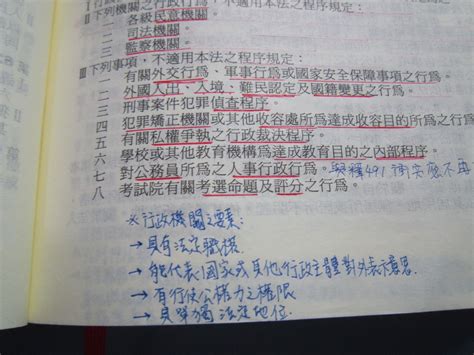 II 下列機關之行政行為,不適用本法之程序規定:
一 各級民意機關。
二 司法機關。
三 監察機關。
III 下列事項,不適用本法之程序規定:
一 有關外交行為、軍事行為或國家安全保障事項之行為。
二 外國人出、入境、難民認定及國籍變更之行為。
三 刑事案件犯罪偵查程序。
四 犯罪矯正機關或其他收容處所為達成收容目的所為之行為。
五 有關私權爭執之行政裁決程序。
六 學校或其他教育機構為達成教育目的之內部程序。
七 對公務員所為之人事行政行為。與釋491衝突應不再
八 考試院有關考選命題及評分之行為。
※行政機關之要素:
→具有法定職權
→能代表國家或其他行政主體對外表示意思
→有行使公權力之權限
→具單獨法定地位